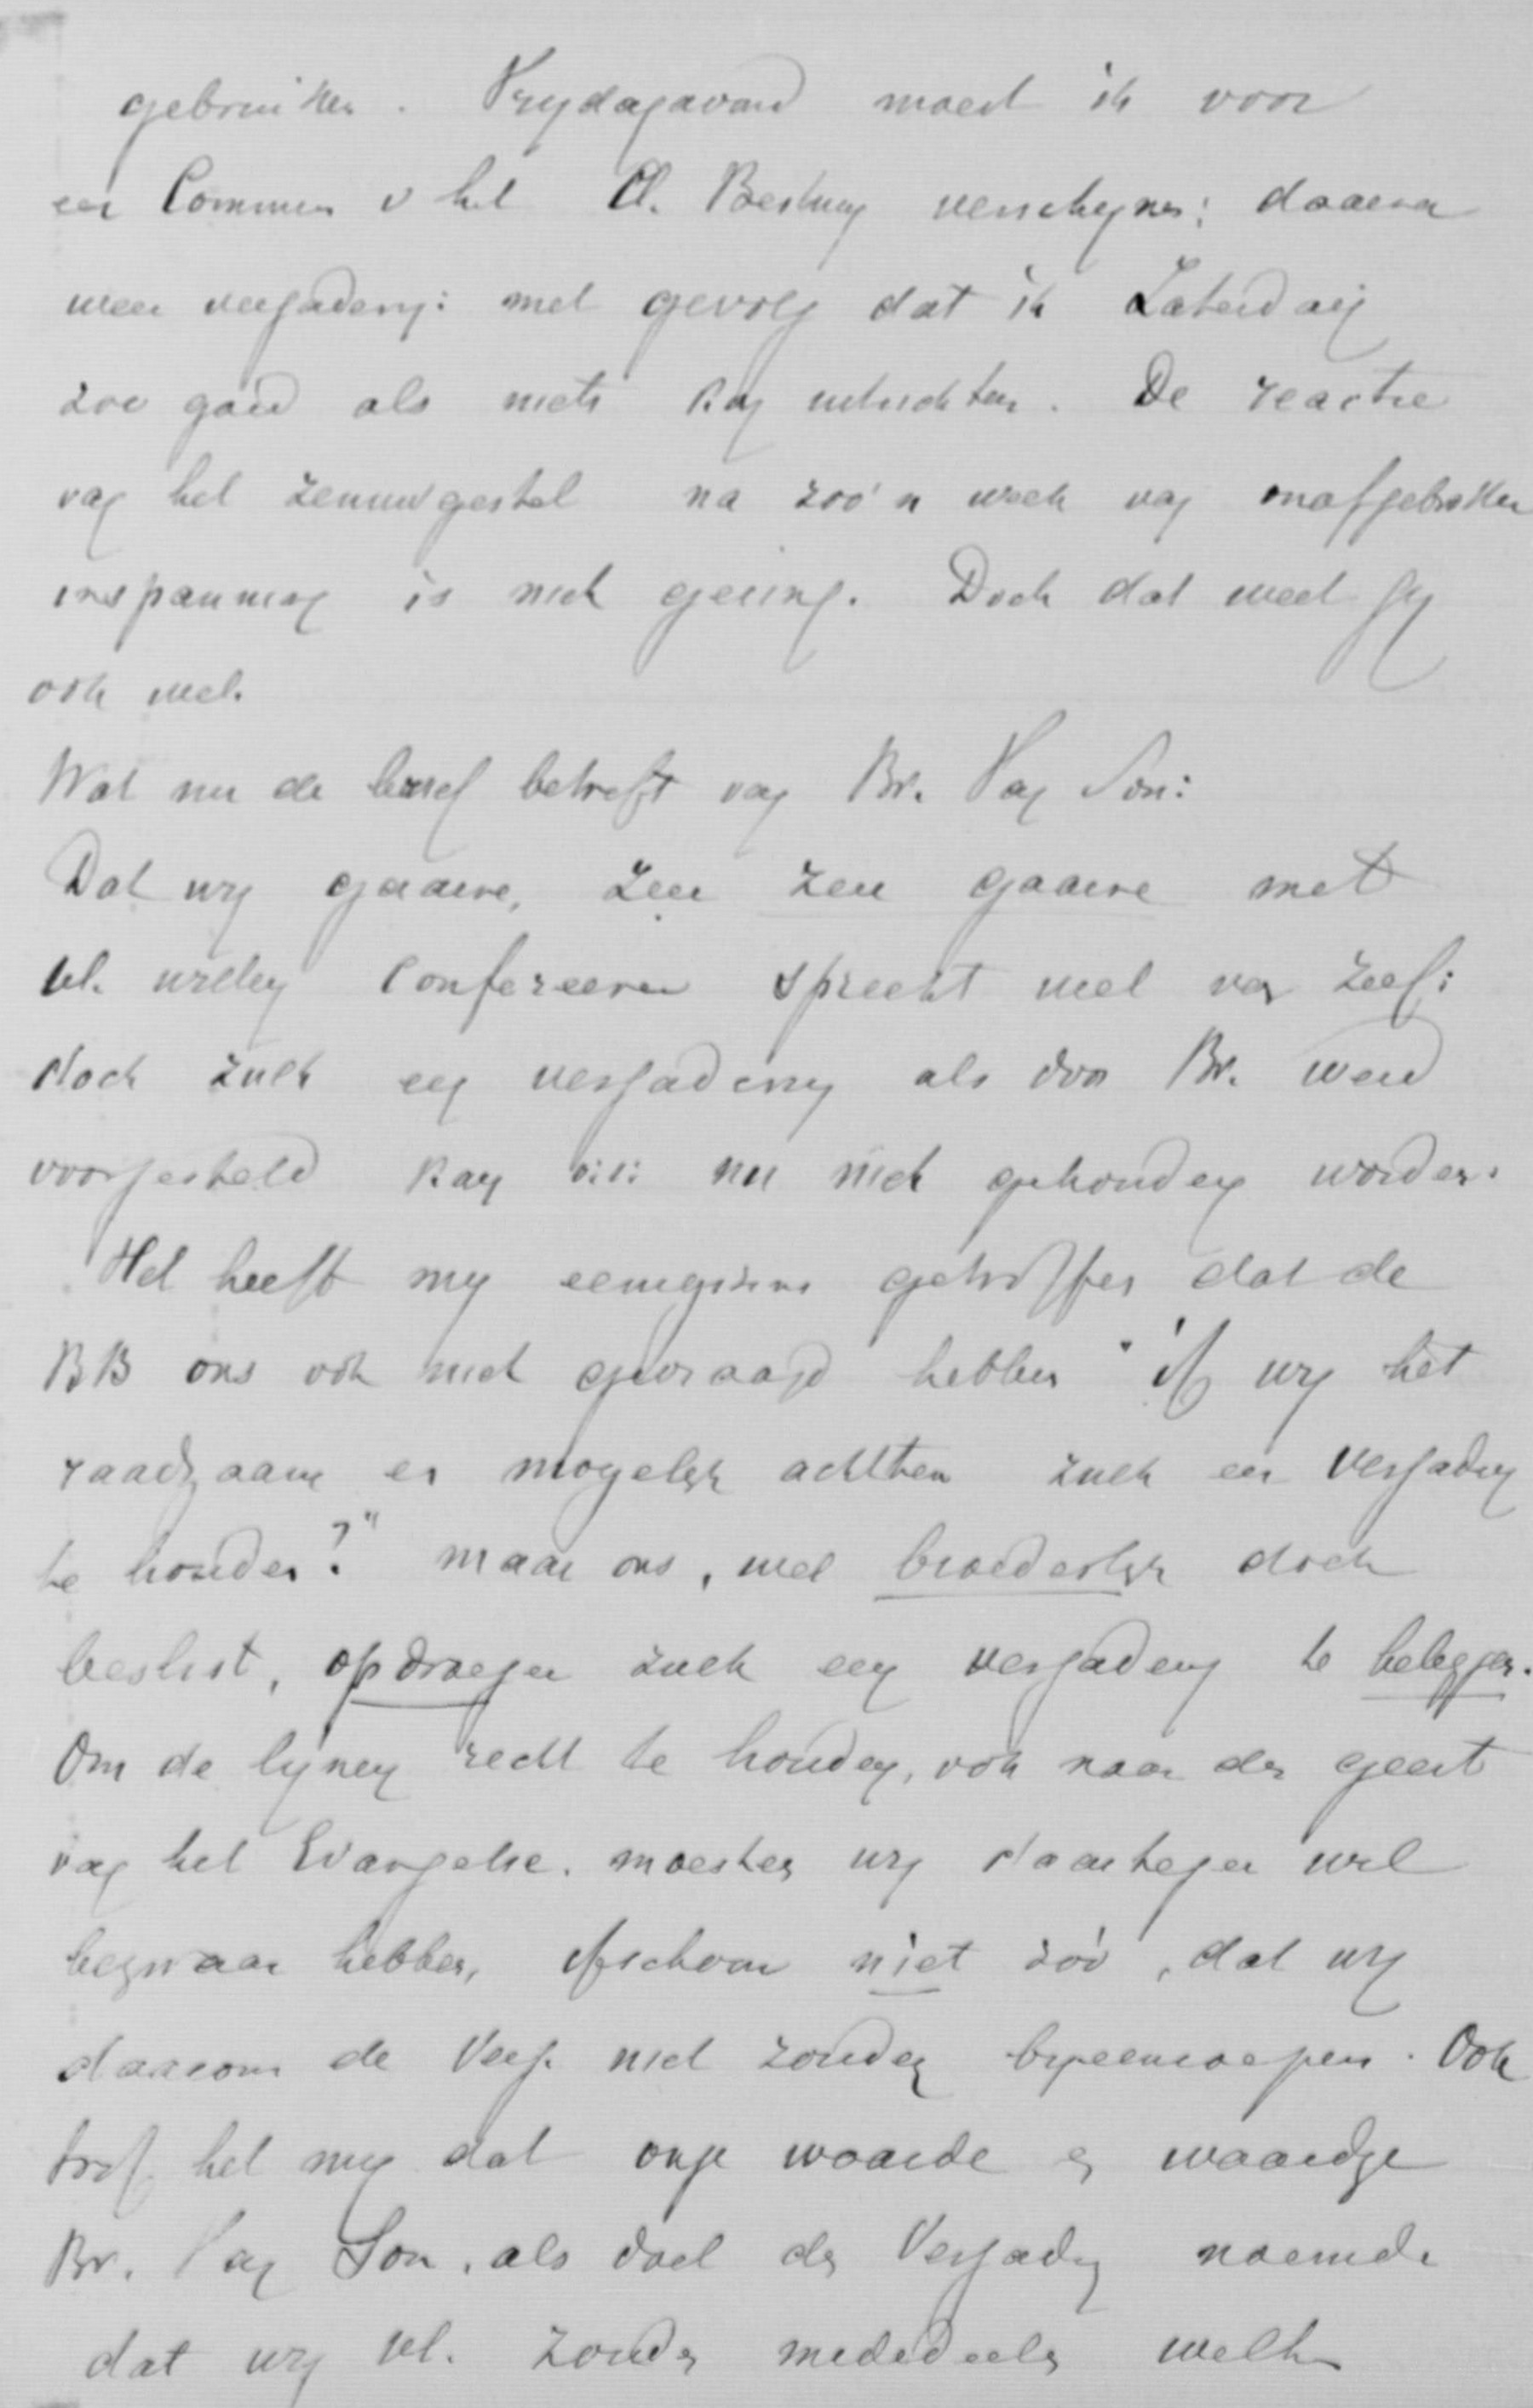 gebruiken. Vrydagavond moest ik voor
een Commissie v het Cl. Bestuur verschynen: daarna
weer vergadering: met gevolg dat ik Zaterdag
zoo goed als niets kon uitrichten. De reactie
van het zenuwgestel na zoo'n week van onafgebroken
inspanning is niet gering. Doch dat weet gy
ook wel.
Wat nu de brief betreft van Br. Van Son:
Dat wy gaarne, zeer zeer gaarne met
Ul. willen Confereeren spreekt wel van zelf:
doch zulk een vergadering als door Br. werd
voorgesteld kan o:i: nu niet gehouden worden.
Het heeft my eenigszins getroffen dat de
BB ons ook niet gevraagd hebben "of wy het
raadzaam en mogelyk achtten zulk een Vergadering
te houden?" maar ons, wel broederlyk doch
beslist, opdroegen zulk een vergadering te beleggen.
Om de lynen recht te houden, ook naar den geest
van het Evangelie, moesten wy daartegen wel
bezwaar hebben, ofschoon niet zóó, dat wy
daarom de Verg. niet zouden byeenroepen. Ook
trof het my dat onze waarde en waardige
Br. Van Son, als doel der Vergadering noemde
dat wy Ul. zouden mededeelen welke